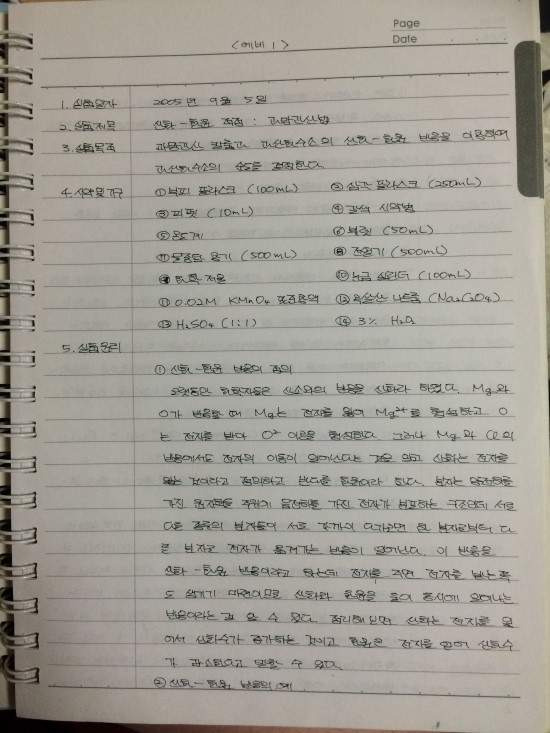 Page
Date
<예비 1>
1. 실험일자 2005년 9월 5일
2. 실험제목 산화-환원 적정 : 과망간산법
3. 실험목적 과망간산 칼륨과 과산화수소의 산화-환원 반응을 이용하여
과산화수소의 순도를 결정한다.
4. 시약 및 기구 ① 부피 플라스크 (100mL) ② 삼각 플라스크 (250mL)
③ 피펫 (10mL) ④ 갈색 시약병
⑤ 온도계 ⑥ 뷰렛 (50mL)
⑦ 용기 (500mL) ⑧ 전열기 (500mL)
⑨ 저울 ⑩ 눈금 실린더 (100mL)
⑪ 0.02M KMnO₄ 표준용액 ⑫ 옥살산 나트륨 (Na₂C₂O₄)
⑬ H₂SO₄ (1:1) ⑭ 3% H₂O₂
5. 실험원리
① 산화-환원 반응의 정의
오랫동안 화학자들은 산소와의 반응을 산화라 하였다. Mg와
O가 반응할 때 Mg는 전자를 잃어 Mg²⁺를 형성하고 O
는 전자를 받아 O²⁻ 이온을 형성한다. 그러나 Mg와 Cl의
반응에서도 전자의 이동이 일어난다는 것을 알고 산화는 전자를
잃는 것이라고 정의하고 반대를 환원이라 한다. 분자는 양전하를
가진 원자핵을 주위에 음전하를 가진 전자가 분포하는 구조인데 서로
다른 종류의 분자들이 서로 가까이 다가오면 한 분자로부터 다
른 분자로 전자가 옮겨가는 반응이 일어난다. 이 반응을
산화-환원 반응이라고 하는데 전자를 주면 전자를 받는 쪽
도 있기 마련이므로 산화와 환원은 둘이 동시에 일어나는
반응이라는 걸 알 수 있다. 정리해보면 산화는 전자를 잃
어서 산화수가 증가하는 것이고 환원은 전자를 얻어 산화수
가 감소한다고 말할 수 있다.
② 산화-환원 반응의 예